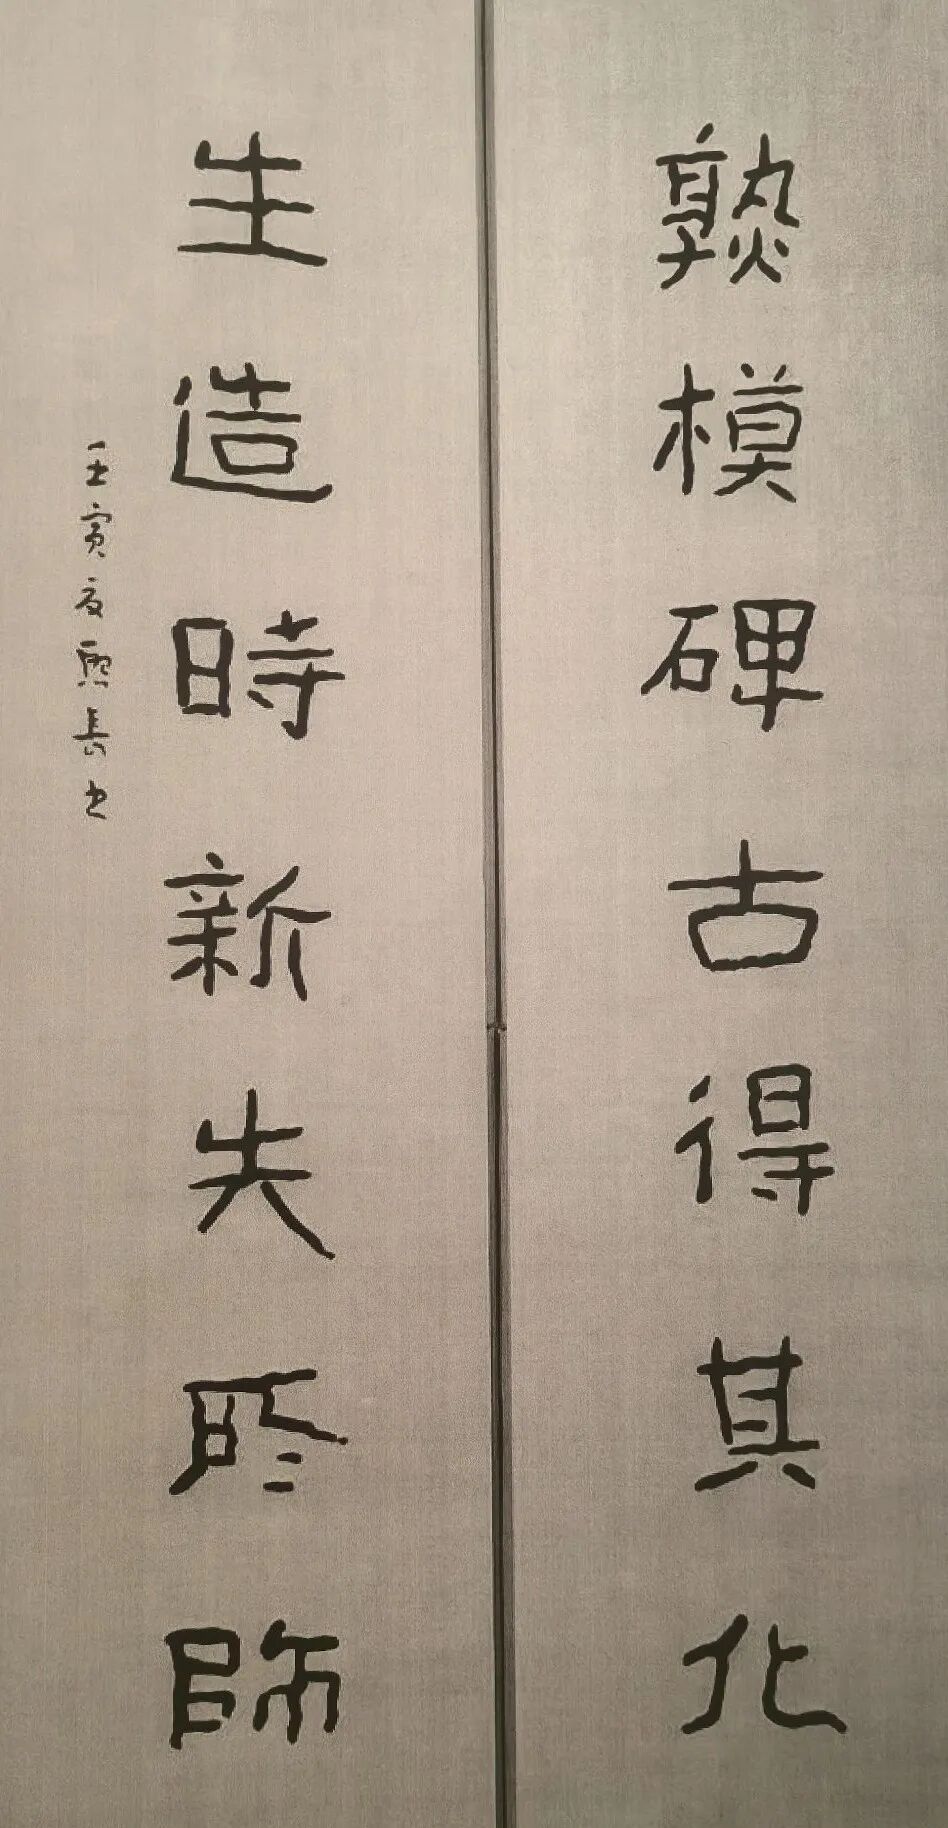 熟模碑古得其化
生造時新失所師
壬寅夏熙長書